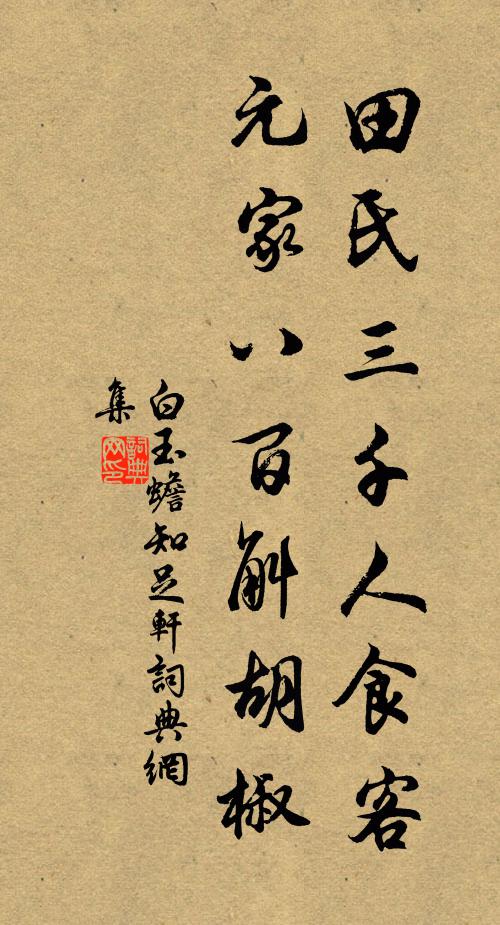 田氏三千人食客
元家八百斛胡椒
白玉蟾知足軒詞典網
集
詞典網印